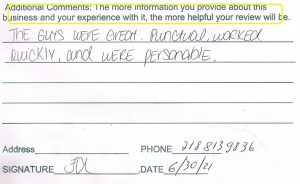 Additional Comments: The more information you provide about this
business and your experience with it, the more helpful your review will be.
THE GUYS WERE GREAT. PUNCTUAL, WORKED
QUICKLY, AND WERE PERSONABLE.
Address PHONE 2188139836
SIGNATURE DATE 6/30/21